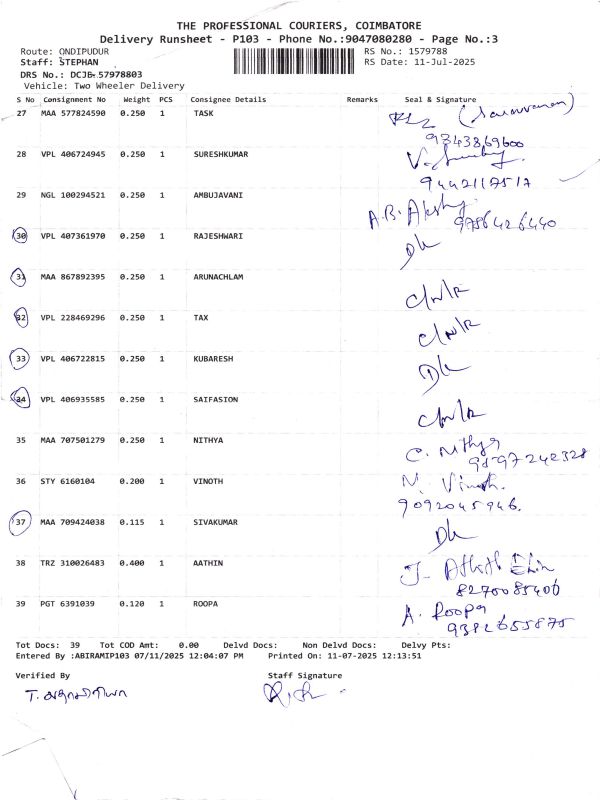 THE PROFESSIONAL COURIERS, COIMBATORE
Delivery Runsheet - P103 - Phone No.:9047080280 - Page No.:3
Route: ONDIPUDUR RS No.: 1579788
Staff: STEPHAN RS Date: 11-Jul-2025
DRS No.: DCJB-57978803
Vehicle: Two Wheeler Delivery
S No Consignment No Weight PCS Consignee Details Remarks Seal & Signature
27 MAA 577824590 0.250 1 TASK
9343369600
28 VPL 406724945 0.250 1 SURESHKUMAR
9442117517
29 NGL 100294521 0.250 1 AMBUJAVANI A.B. Akshy
9786426440
30 VPL 407361970 0.250 1 RAJESHWARI DL
31 MAA 867892395 0.250 1 ARUNACHLAM C/N/R
32 VPL 228469296 0.250 1 TAX C/N/R
33 VPL 406722815 0.250 1 KUBARESH DL
34 VPL 406935585 0.250 1 SAIFASION C/N/R
35 MAA 707501279 0.250 1 NITHYA C. Nithya
9897242328
36 STY 6160104 0.200 1 VINOTH N. Vinoth.
9092045946.
37 MAA 709424038 0.115 1 SIVAKUMAR DL
38 TRZ 310026483 0.400 1 AATHIN J.
8270085400
39 PGT 6391039 0.120 1 ROOPA A. Roopa
9382655875
Tot Docs: 39 Tot COD Amt: 0.00 Delvd Docs: Non Delvd Docs: Delvy Pts:
Entered By :ABIRAMIP103 07/11/2025 12:04:07 PM Printed On: 11-07-2025 12:13:51
Verified By Staff Signature